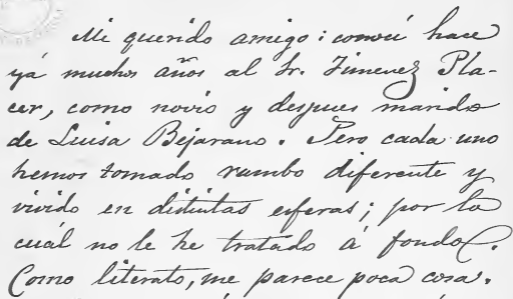 Mi querido amigo: conocí hace
yá muchos años al Sr. Jimenez Pla-
cer, como novio y despues marido
de Luisa Bejarano. Pero cada uno
hemos tomado rumbo diferente y
vivido en distintas esferas; por lo
cuál no le he tratado á fondo.
Como literato, me parece poca cosa.